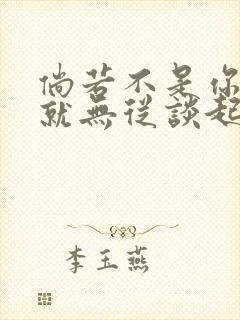 倘若不是你
就無從談起
李玉燕